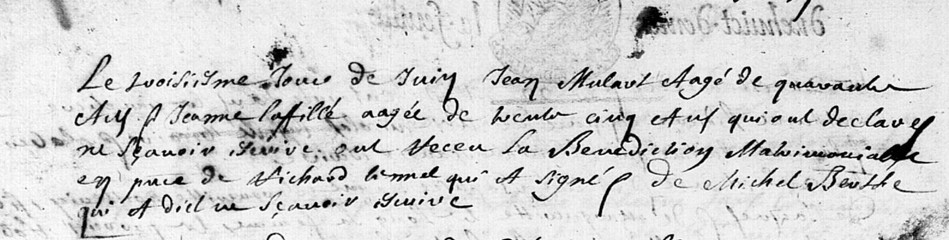 Le troisiesme Jour de Juin Jean Mulaut Aagé de quarante
Ans & Jeanne laffillé aagée de trente cinq Ans qui ont declaré
ne sçavoir escrire ont receu La Benediction Matrimonialle
en pnce de Richard qui A signé & de Michel Berthe
qui A dict ne sçavoir escrire